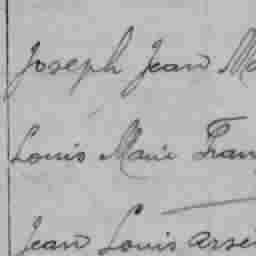 Joseph Jean Ma
Louis Marie Fran
Jean Louis Arsè